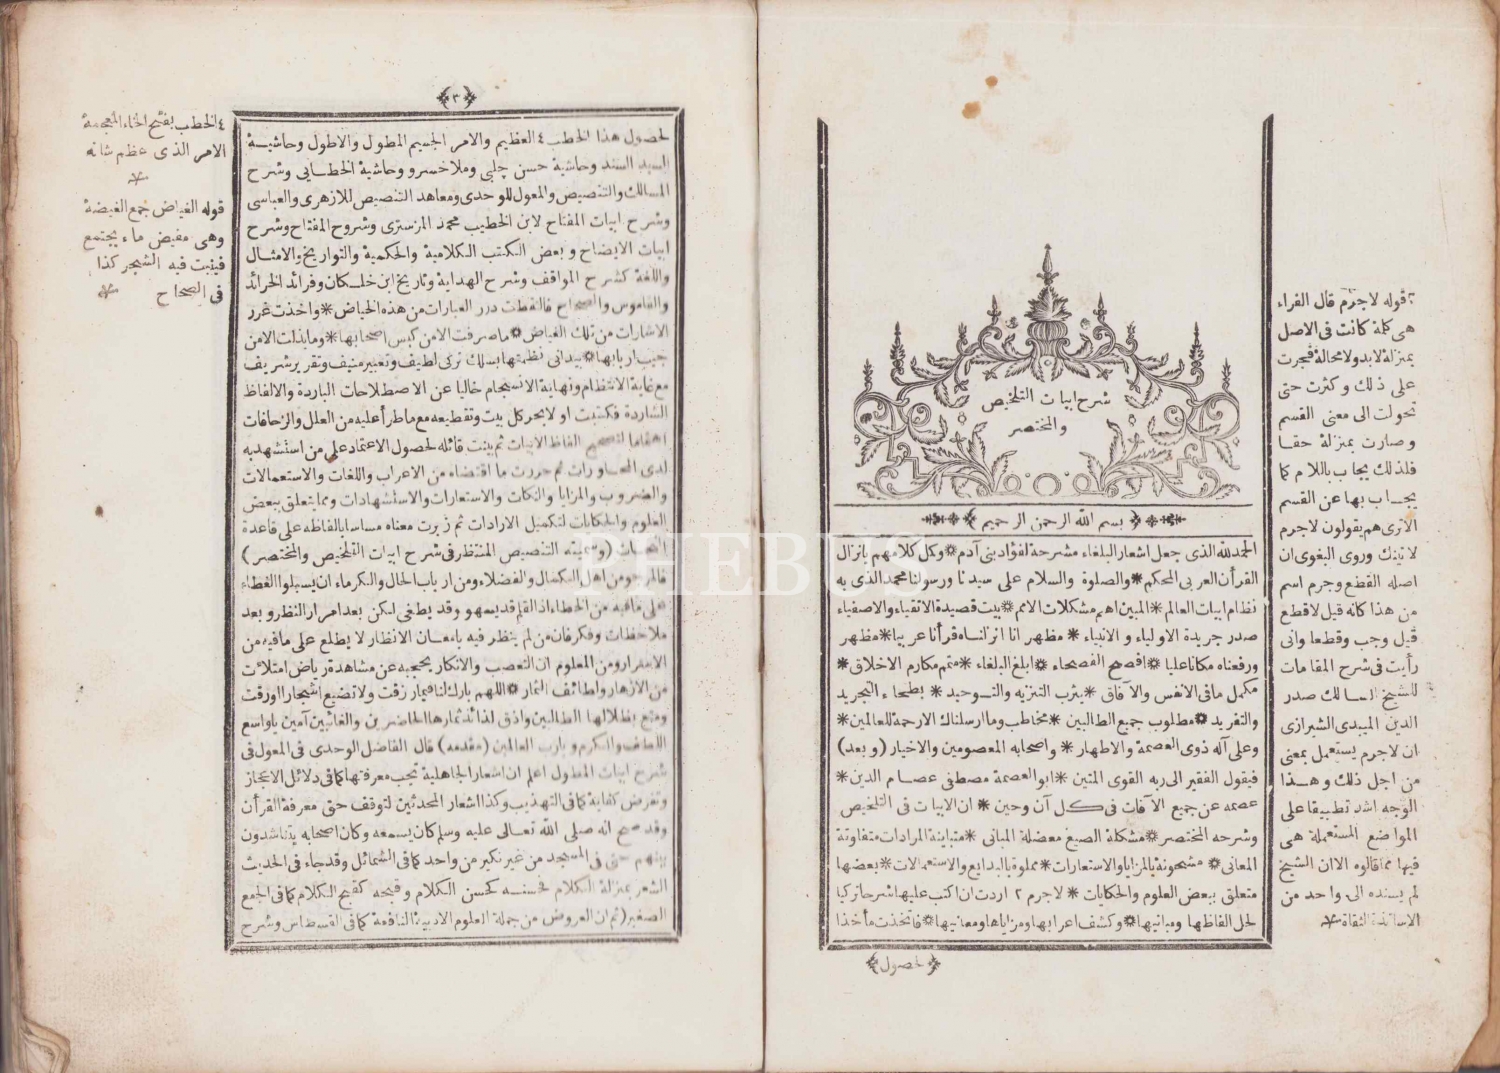 شرح ابيات التلخيص
والمختصر
بسم الله الرحمن الرحيم
الحمد لله الذى جعل اشعار البلغاء مشرحة لفؤاد بنى آدم * وكل كلامهم بانزال
القرأن العربى المحكم * والصلوة والسلام على سيدنا ورسولنا محمد الذى به
نظام ابيات العالم * المبين اهم مشكلات الامم * بيت قصيدة الاتقياء والاصفياء
صدر جريدة الاولياء والانبياء * مظهر انا انزلناه قرأنا عربيا * مظهر
ورفعناه مكانا عليا * افصح الفصحاء * ابلغ البلغاء * متمم مكارم الاخلاق *
مكمل ما فى الانفس والآفاق * يثرب التنزيه والتوحيد * بطحاء التجريد
والتفريد * مطلوب جميع الطالبين * مخاطب وما ارسلناك الا رحمة للعالمين *
وعلى آله ذوى العصمة والاطهار * واصحابه المعصومين والاخيار (وبعد)
فيقول الفقير الى ربه القوى المتين * ابو العصمة مصطفى عصام الدين *
عصمه عن جميع الآفات فى كل آن وحين * ان الابيات فى التلخيص
وشرحه المختصر * مشكلة الصيغ معضلة المبانى * متباينة المرادات متفاوتة
المعانى * مشحونة بالمزايا والاستعارات * مملوة بالبدايع والاستعمالات * بعضها
متعلق ببعض العلوم والحكايات * لاجرم ٢ اردت ان اكتب عليها شرحا تركيا
لحل الفاظها ومبانيها * وكشف اعرابها ومزاياها ومعانيها * فاتخذت مأخذا
لحصول
٢ قوله لاجرم قال الفراء
هى كلمة كانت فى الاصل
بمنزلة لابد ولا محالة فجرت
على ذلك وكثرت حتى
تحولت الى معنى القسم
وصارت بمنزلة حقا
فلذلك يجاب باللام كما
يجاب بها عن القسم
الا ترى هم يقولون لاجرم
لآتينك وروى البغوى ان
اصله القطع وجرم اسم
من هذا كانه قيل لا قطع
قيل وجب وقطعا وانى
رأيت فى شرح المقامات
للشيخ السالك صدر
الدين الميبدى الشيرازى
ان لاجرم يستعمل بمعنى
من اجل ذلك وهذا
الوجه اشد تطبيقا على
المواضع المستعملة هى
فيها مما قالوه الا ان الشيخ
لم يسنده الى واحد من
الاساتذة الثقاة *
٣
لحصول هذا الخطب ٤ العظيم والامر الجسيم المطول والاطول وحاشية
السيد السند وحاشية حسن چلبى وملا خسرو وحاشية الخطابى وشرح
المسالك والتنصيص والمعول للوحدى ومعاهد التنصيص للازهرى والعباسى
وشرح ابيات المفتاح لابن الخطيب محمد المزسترى وشروح المفتاح وشرح
ابيات الايضاح وبعض الكتب الكلامية والحكمية والتواريخ والامثال
واللغة كشرح المواقف وشرح الهداية وتاريخ ابن خلكان وفرائد الخرائد
والقاموس والصحاح فالتقطت درر العبارات من هذه الحياض * واخذت غرر
الاشارات من تلك الغياض * ما صرفت الا من كيس اصحابها * وما بذلت الا من
جيب اربابها * بيد انى نظمتها بسلك تركى لطيف وتعبير منيف وتقرير شريف
مع غاية الانتظام ونهاية الانسجام خاليا عن الاصطلاحات الباردة والالفاظ
الشاردة فكتبت اولا بحر كل بيت وتقطيعه مع ما طرأ عليه من العلل والزحافات
اهتماما لتصحيح الفاظ الابيات ثم بينت قائله لحصول الاعتماد على من استشهد به
لدى المحاورات ثم حررت ما اقتضاه من الاعراب واللغات والاستعمالات
والضروب والمزايا والنكات والاستعارات والاستشهادات ومما يتعلق ببعض
العلوم والحكايات لتكميل الارادات ثم زبرت معناه مساسا بالفاظه على قاعدة
(وسميته التنصيص المنتظر فى شرح ابيات التلخيص والمختصر)
فالمرجو من اهل الكمال والفضلاء ومن ارباب الحال والكرماء ان يسبلوا الغطاء
على ما فيه من الخطاء اذ القلم قد يسهو وقد يطغى لكن بعد امرار النظر وبعد
ملاحظات وفكر فان من لم ينظر فيه بامعان الانظار لا يطلع على ما فيه من
الاسرار ومن المعلوم ان التعصب والانكار يحجبه عن مشاهدة رياض امتلأت
من الازهار ولطائف الثمار * اللهم بارك لنا فيما رزقت ولا تضيع اشجارا اورقت
ومتع بظلالها الطالبين واذق لذائذ ثمارها الحاضرين والغائبين آمين يا واسع
اللطف والكرم ويا رب العالمين (مقدمه) قال الفاضل الوحدى فى المعول فى
شرح ابيات المطول اعلم ان اشعار الجاهلية تجب معرفتها كما فى دلائل الاعجاز
وتفرض كفاية كما فى التهذيب وكذا اشعار المحدثين لتوقف حق معرفة القرأن
وقد صح انه صلى الله تعالى عليه وسلم كان يسمعه وكان اصحابه يتناشدون
بينهم حتى فى المسجد من غير نكير من واحد كما فى الشمائل وقد جاء فى الحديث
الشعر بمنزلة الكلام فحسنه كحسن الكلام وقبيحه كقبيح الكلام كما فى الجمع
الصغير (ثم ان العروض من جملة العلوم الادبية النافعة كما فى القسطاس وشرح
٤ الخطب بفتح الخاء المعجمة
الامر الذى عظم شانه
*
قوله الغياض جمع الغيضة
وهى مغيض ماء يجتمع
فينبت فيه الشجر كذا
فى الصحاح *
PHEBUS